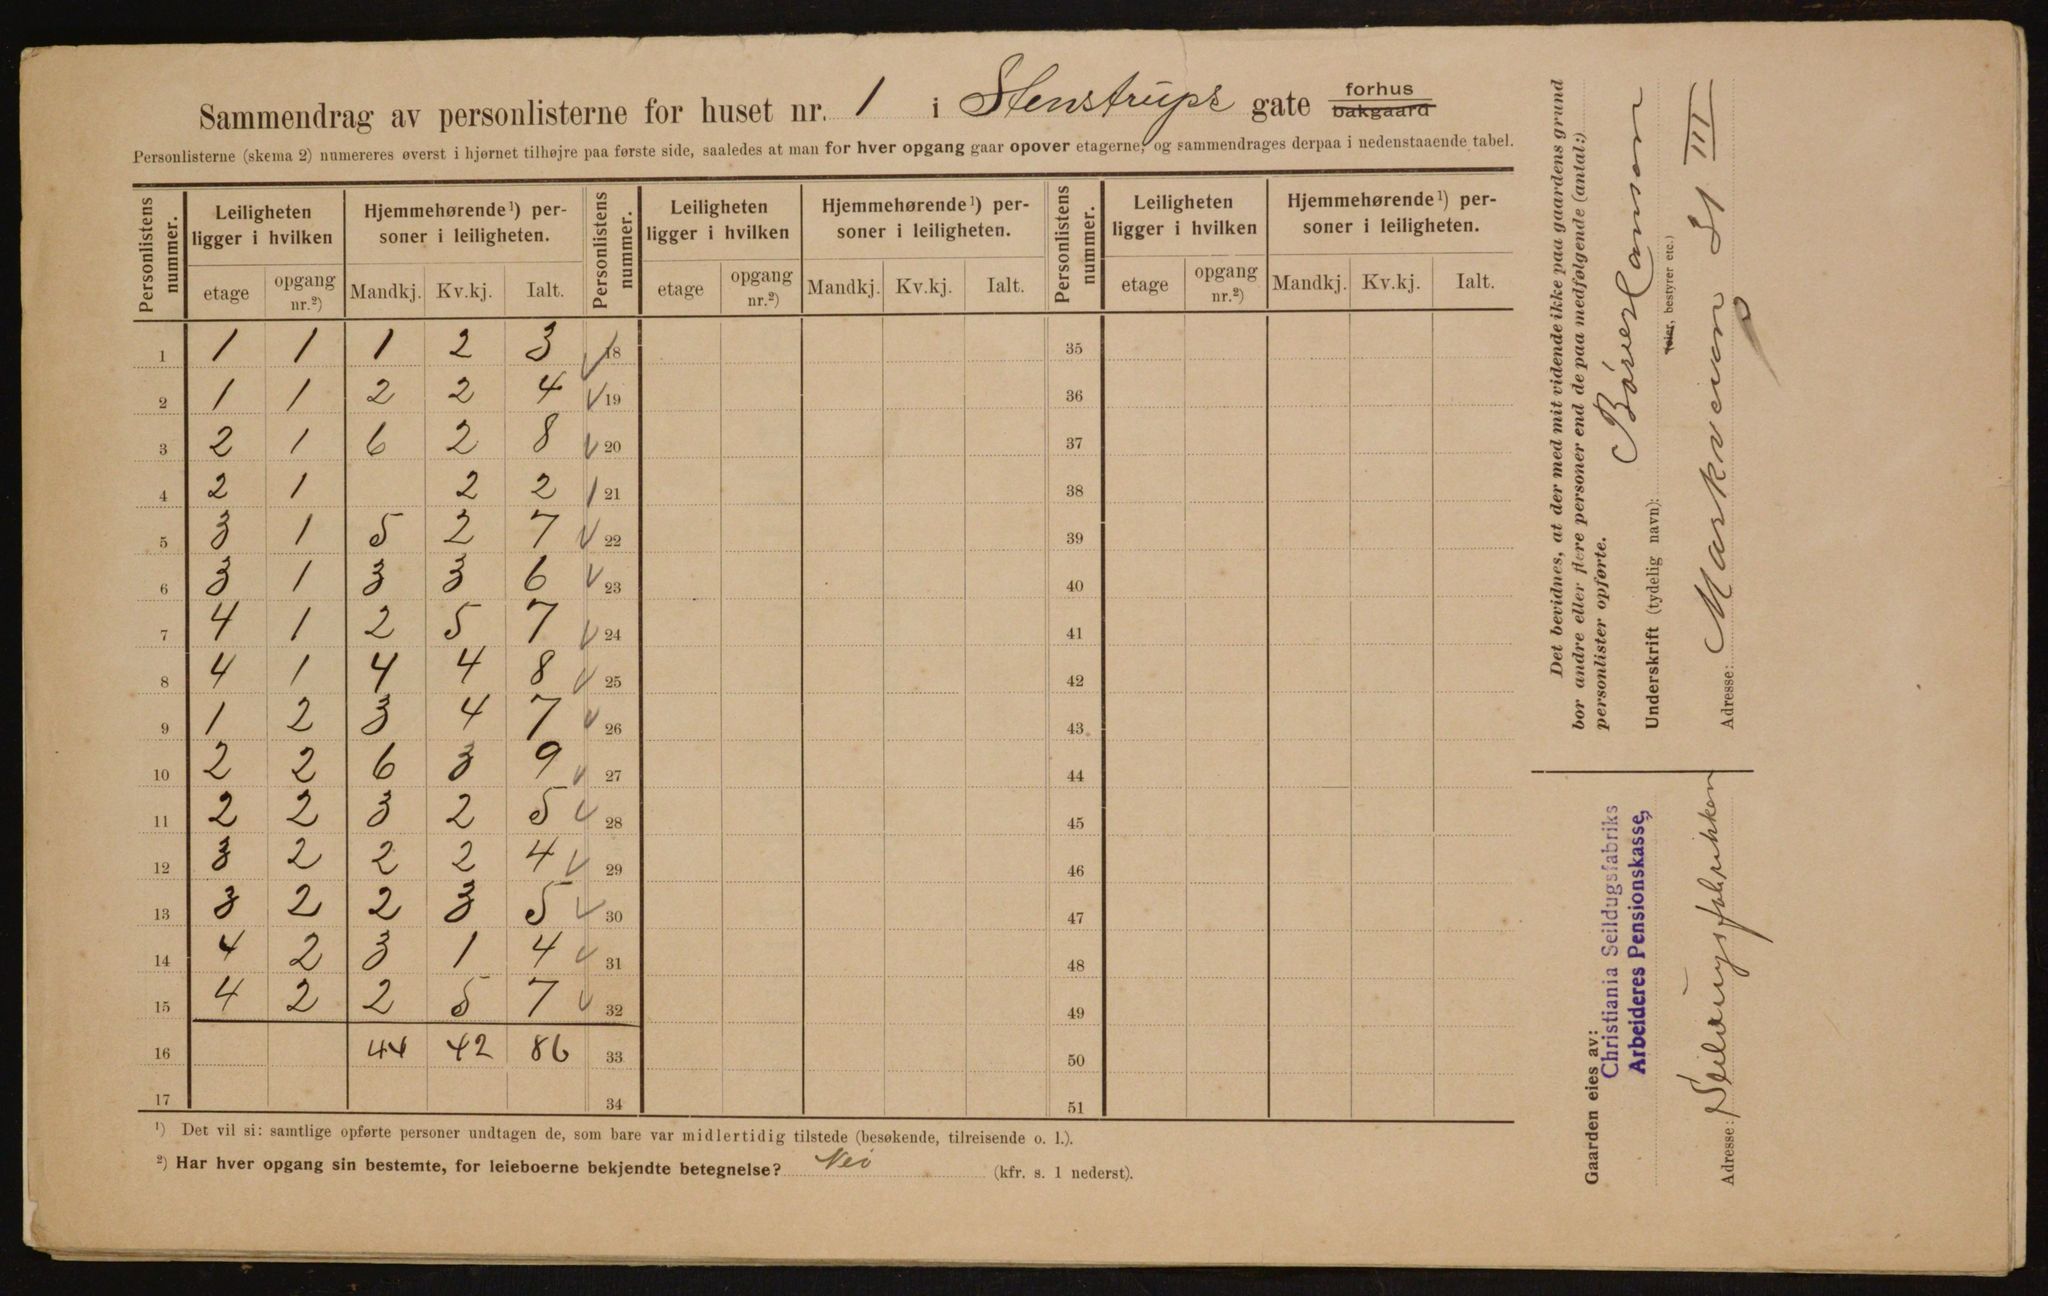 Sammendrag av personlisterne for huset nr. 1 i Stenstrups gate forhus bakgaard
Personlisterne (skema 2) numereres øverst i hjørnet tilhøjre paa første side, saaledes at man for hver opgang gaar opover etagerne, og sammendrages derpaa i nedenstaaende tabel.
Personlistens nummer. Leiligheten ligger i hvilken Hjemmehørende¹) personer i leiligheten. Personlistens nummer. Leiligheten ligger i hvilken Hjemmehørende¹) personer i leiligheten. Personlistens nummer. Leiligheten ligger i hvilken Hjemmehørende¹) personer i leiligheten.
etage opgang nr.²) Mandkj. Kv.kj. Ialt. etage opgang nr.²) Mandkj. Kv.kj. Ialt. etage opgang nr.²) Mandkj. Kv.kj. Ialt.
1 1 1 1 2 3 18 35
2 1 1 2 2 4 19 36
3 2 1 6 2 8 20 37
4 2 1 2 2 21 38
5 3 1 5 2 7 22 39
6 3 1 3 3 6 23 40
7 4 1 2 5 7 24 41
8 4 1 4 4 8 25 42
9 1 2 3 4 7 26 43
10 2 2 6 3 9 27 44
11 2 2 3 2 5 28 45
12 3 2 2 2 4 29 46
13 3 2 2 3 5 30 47
14 4 2 3 1 4 31 48
15 4 2 2 5 7 32 49
16 44 42 86 33 50
17 34 51
¹) Det vil si: samtlige opførte personer undtagen de, som bare var midlertidig tilstede (besøkende, tilreisende o. l.).
²) Har hver opgang sin bestemte, for leieboerne bekjendte betegnelse? Nei (kfr. s. 1 nederst).
Det bevidnes, at der med mit vidende ikke paa gaardens grund
bor andre eller flere personer end de paa medfølgende (antal:)
personlister opførte.
Underskrift (tydelig navn):
eier, bestyrer etc.)
Adresse: Markveien 31 III
Gaarden eies av:
Christiania Seildugsfabriks
Arbeideres Pensionskasse,
Adresse: Seildugsfabrikken